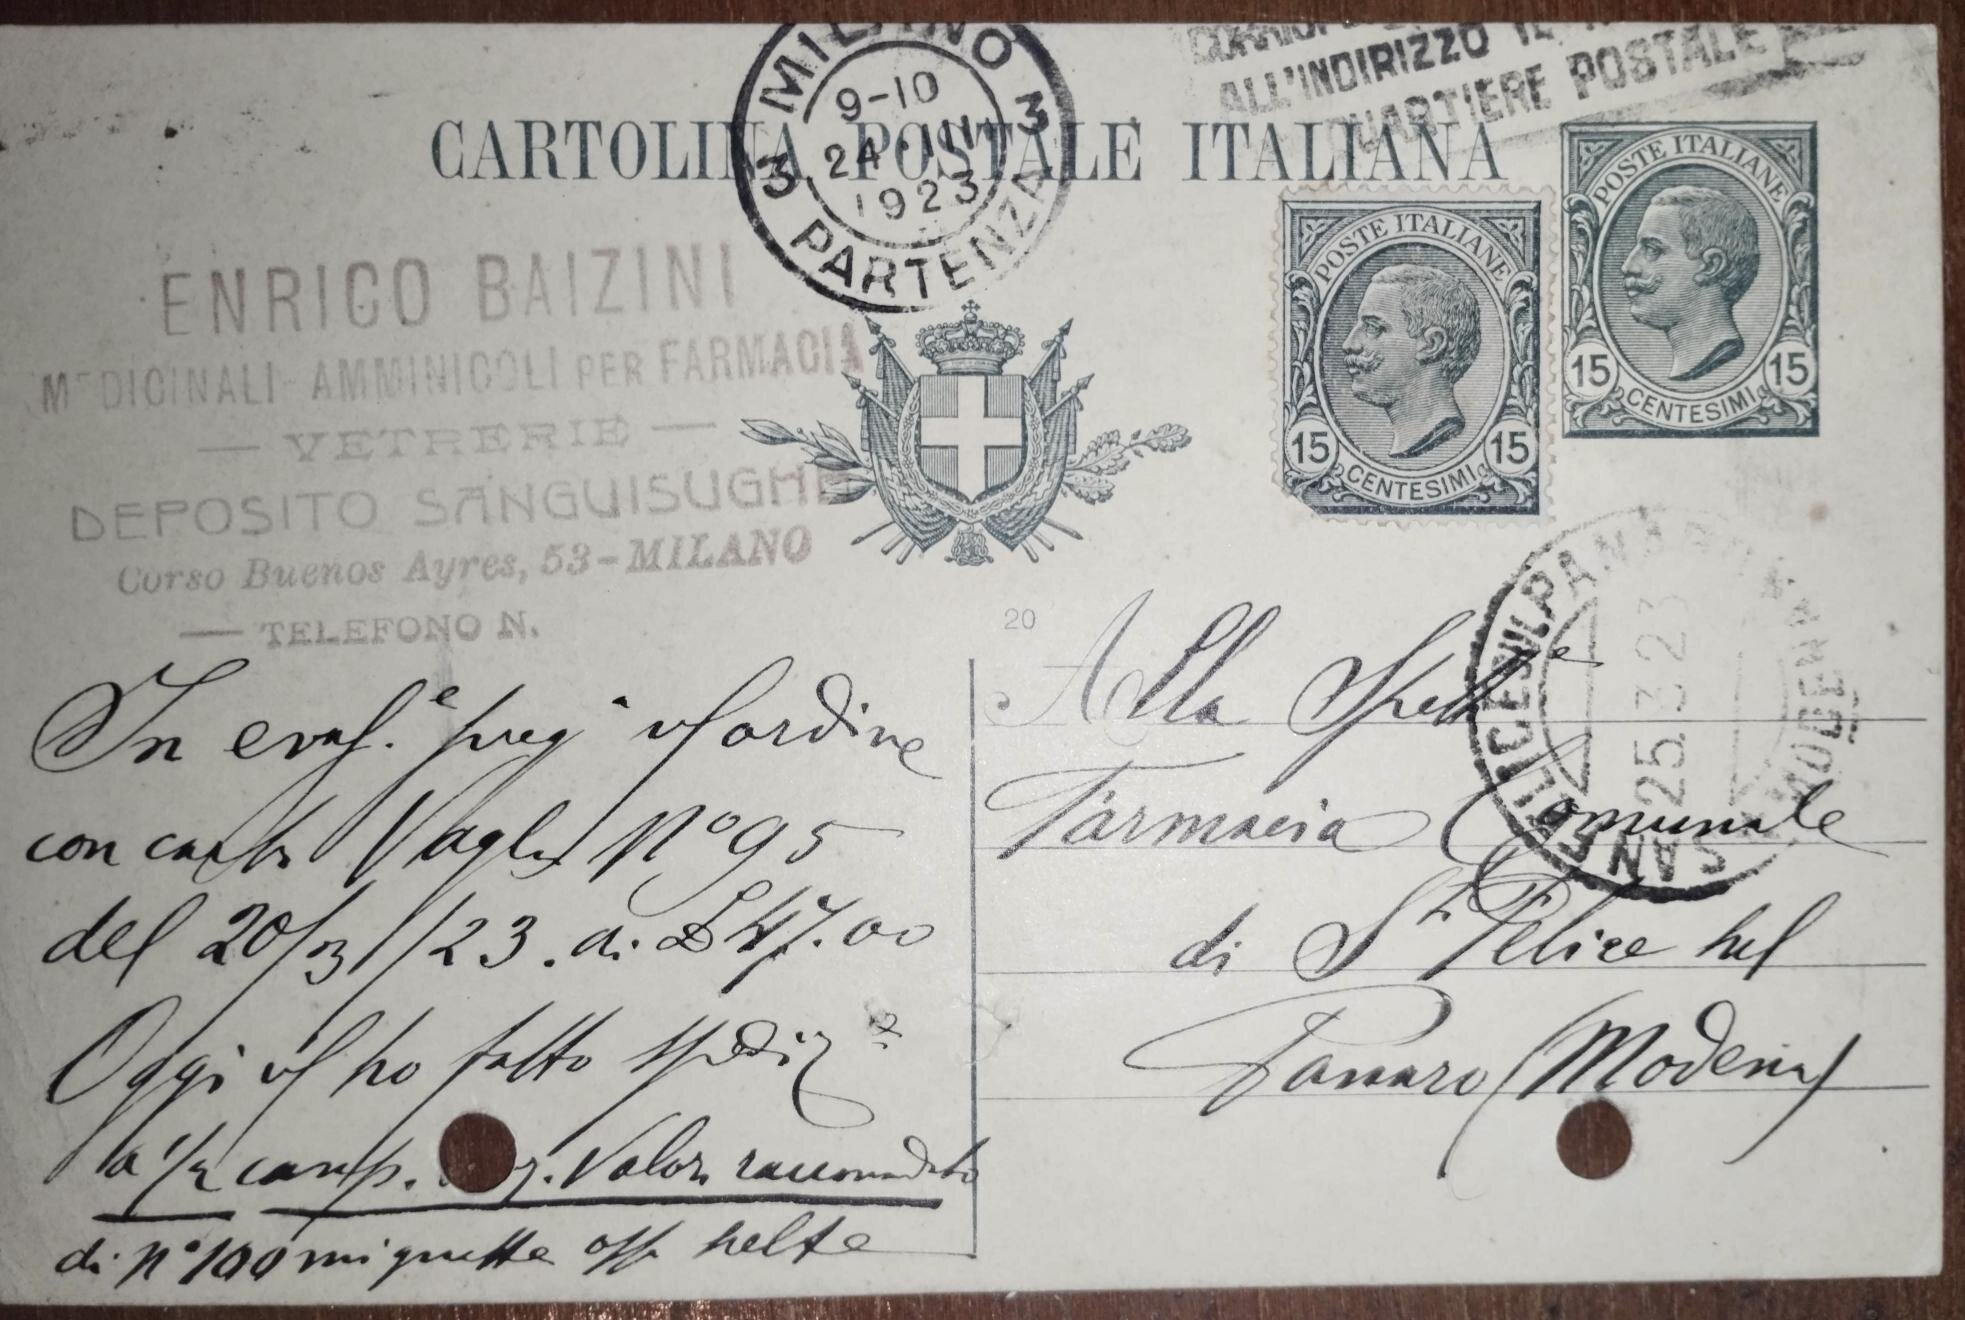 ALL'INDIRIZZO IL
QUARTIERE POSTALE
MILANO
3 3
9-10
24·III
1923
PARTENZA
CARTOLINA POSTALE ITALIANA
POSTE ITALIANE
15 15
CENTESIMI
POSTE ITALIANE
15 15
CENTESIMI
ENRICO BAIZINI
MEDICINALI - AMMINICOLI PER FARMACIA
— VETRERIE —
DEPOSITO SANGUISUGHE
Corso Buenos Ayres, 53 - MILANO
— TELEFONO N.
20
SAN FELICE SUL PANARO
MODENA
25.3.23
In evas.e preg vs ordine
con Vaglia No 95
del 20/3/23. di £ 47.00
Oggi vs ho fatto
a 1/2 camp. Valore raccomandato
di No 100 mignatte
Alla Spett
Farmacia Comunale
di S. Felice sul
Panaro (Modena)